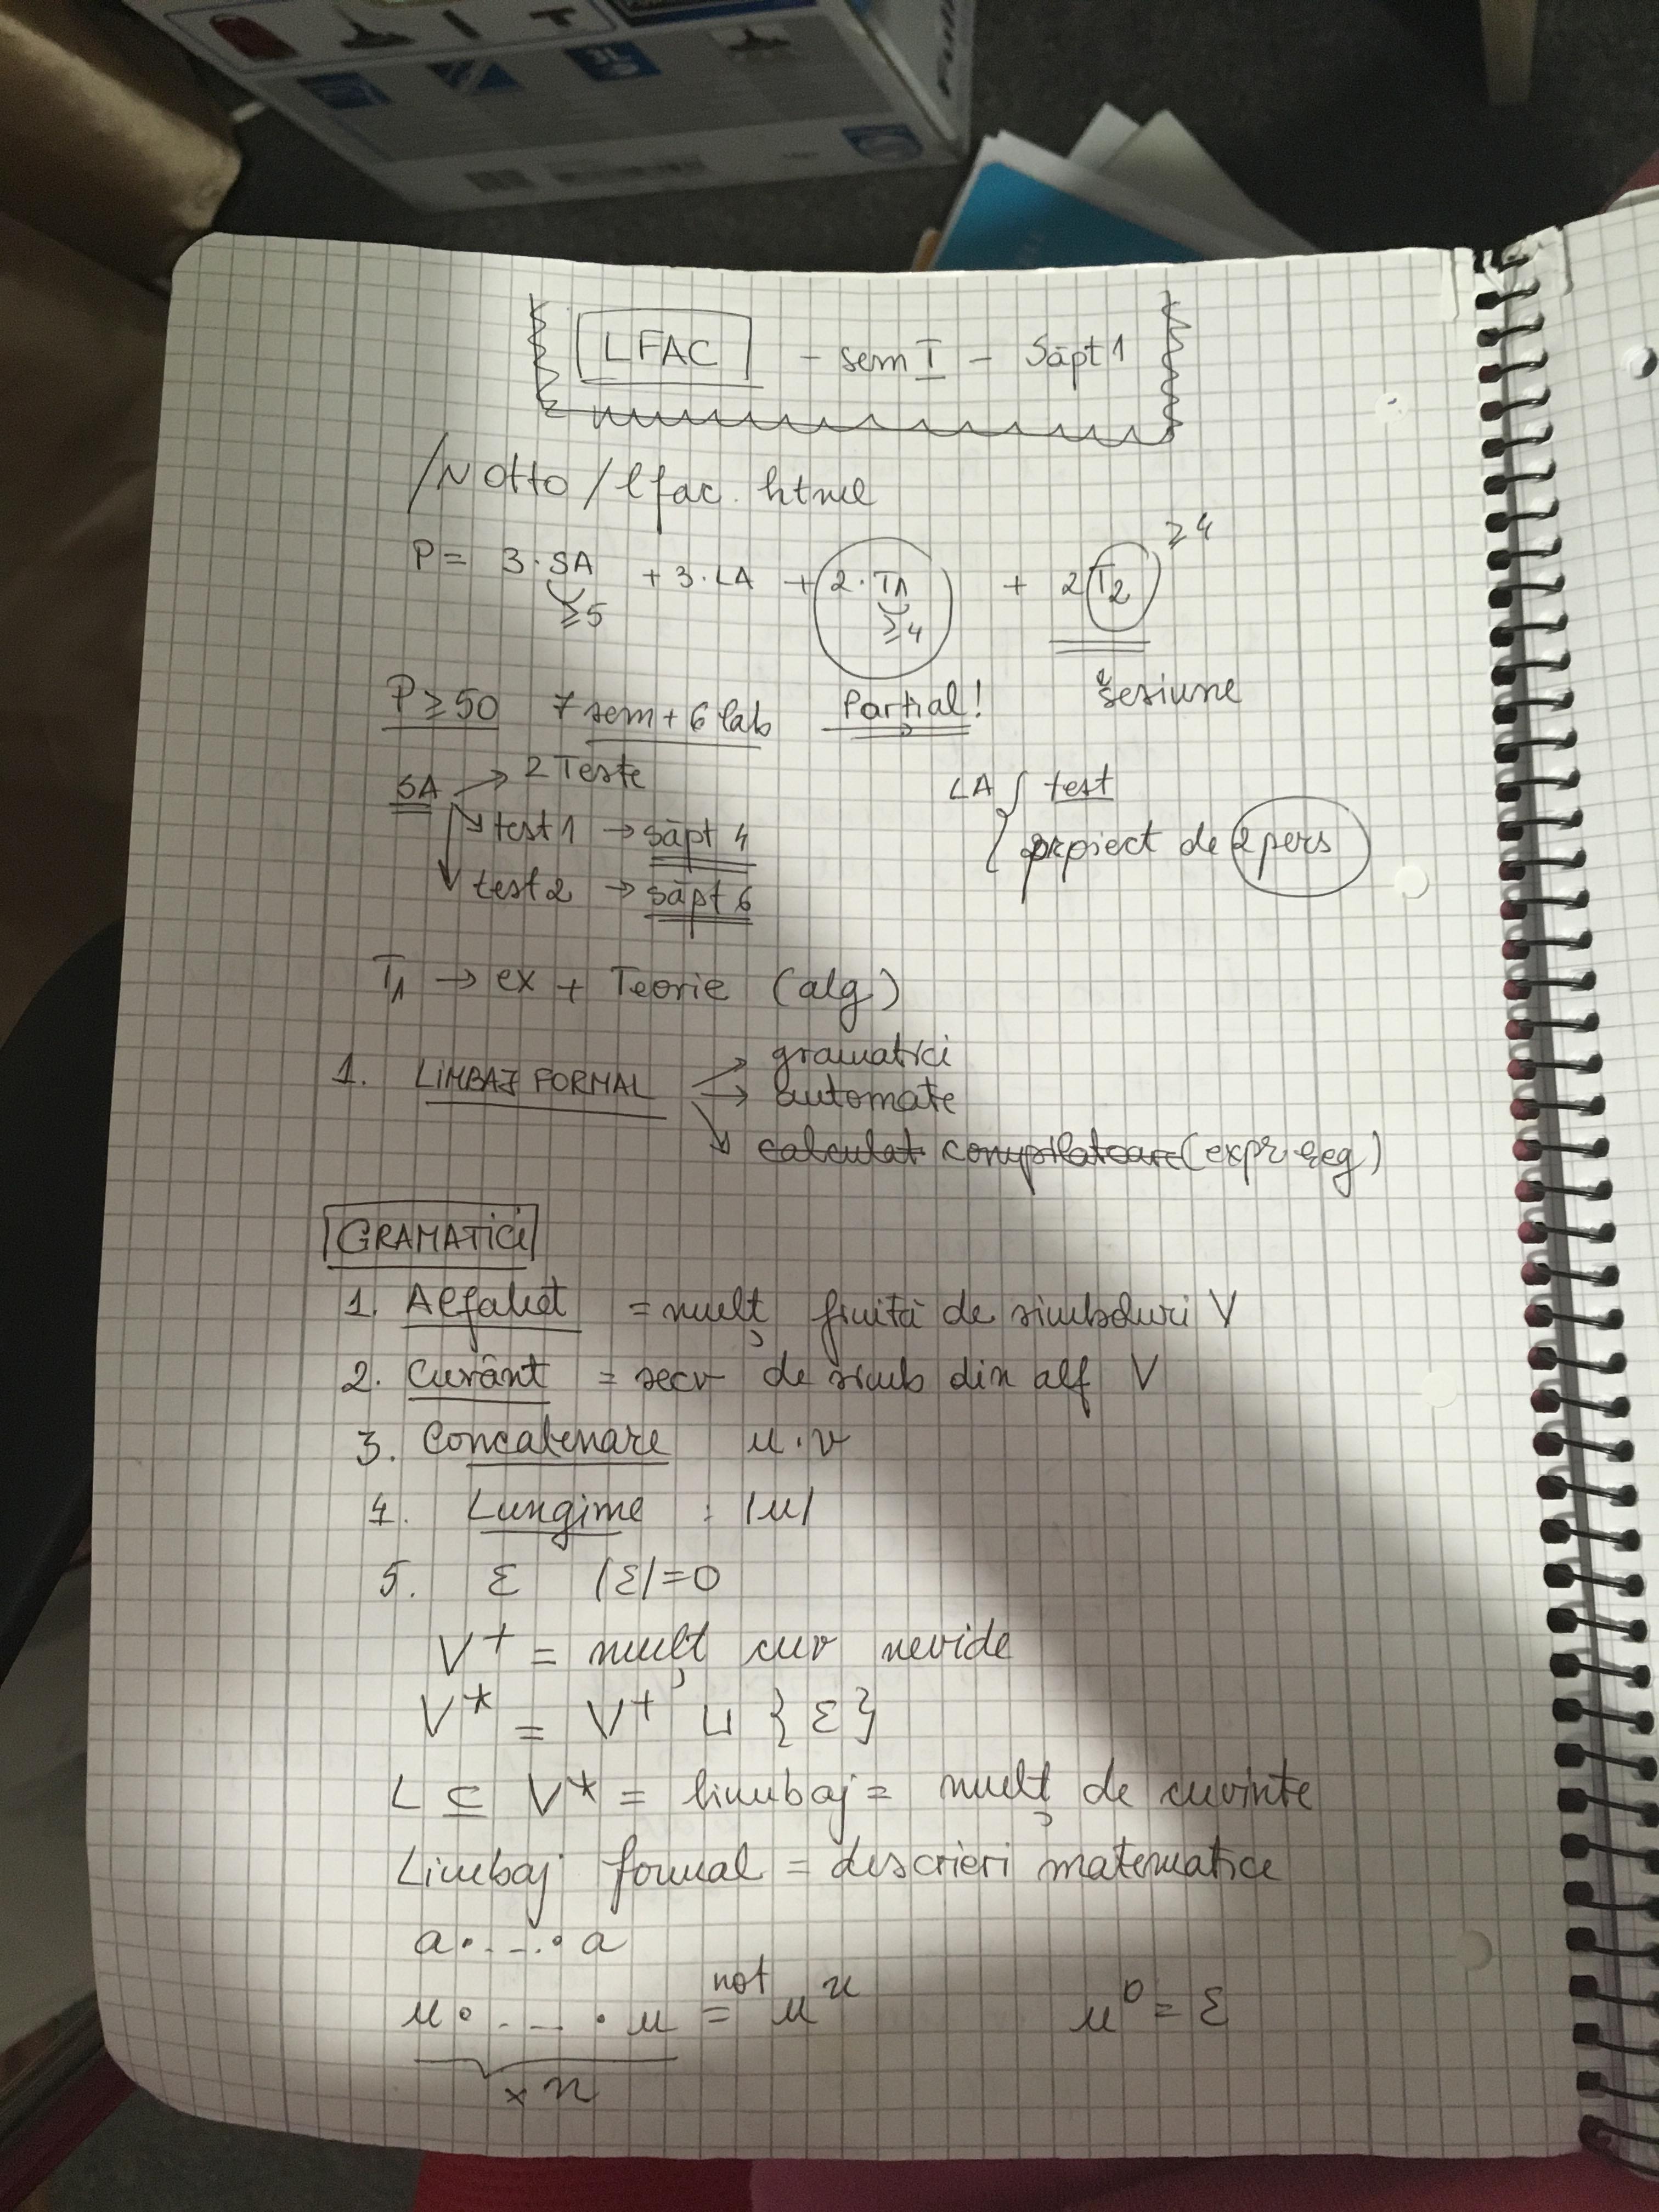 LFAC - sem I - Săpt 1
/N Otto / lfac. html
P = 3·SA + 3·LA + 2·T1 + 2 T2 ≥4
≥5 ≥4
P ≥ 50 7 sem + 6 lab Parțial! sesiune
SA → 2 Teste
→ test 1 → săpt 4
→ test 2 → săpt 6
LA { test
proiect de 2 pers
T1 → ex + Teorie (alg)
1. LIMBAJ FORMAL → gramatici
→ automate
→ calculat compilatoare (expr reg)
GRAMATICI
1. Alfabet = mulț finită de simboluri V
2. Cuvânt = secv de simb din alf V
3. Concatenare u·v
4. Lungime : |u|
5. ε |ε|=0
V+ = mulț cuv nevide
V* = V+ ∪ {ε}
L ⊆ V* = limbaj = mulț de cuvinte
Limbaj formal = descrieri matematice
a·...·a
u·...·u =not uⁿ u⁰ = ε
× n